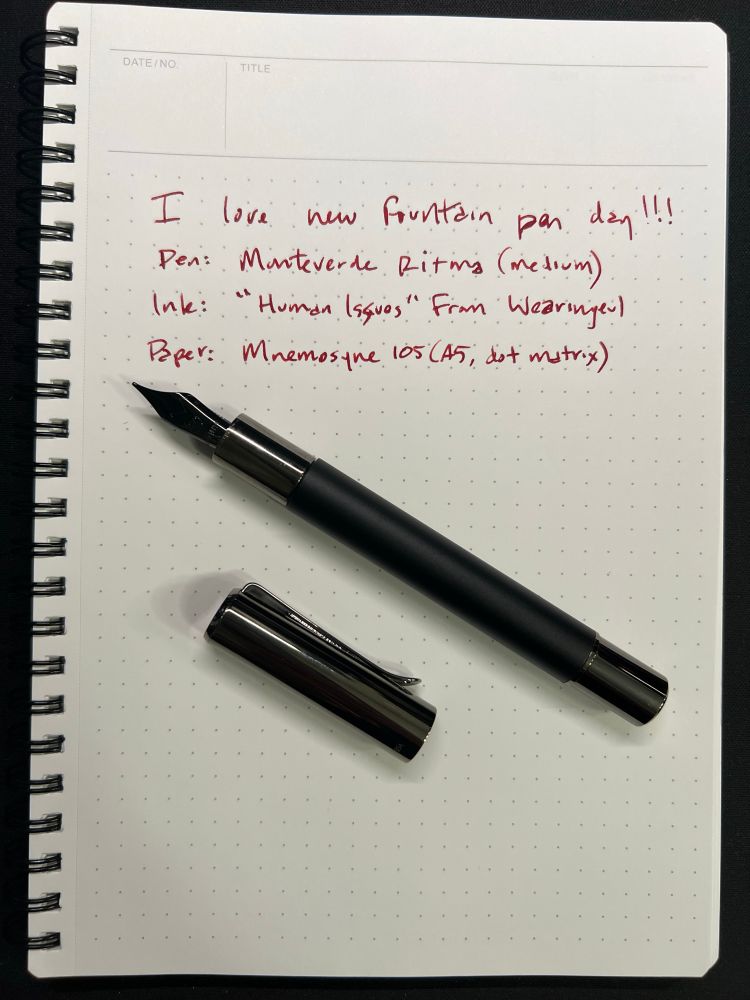 DATE/NO.
TITLE
I love new fountain pen day!!!
Pen: Monteverde Ritma (medium)
Ink: "Human Issues" From Wearingeul
Paper: Mnemosyne 105 (A5, dot matrix)